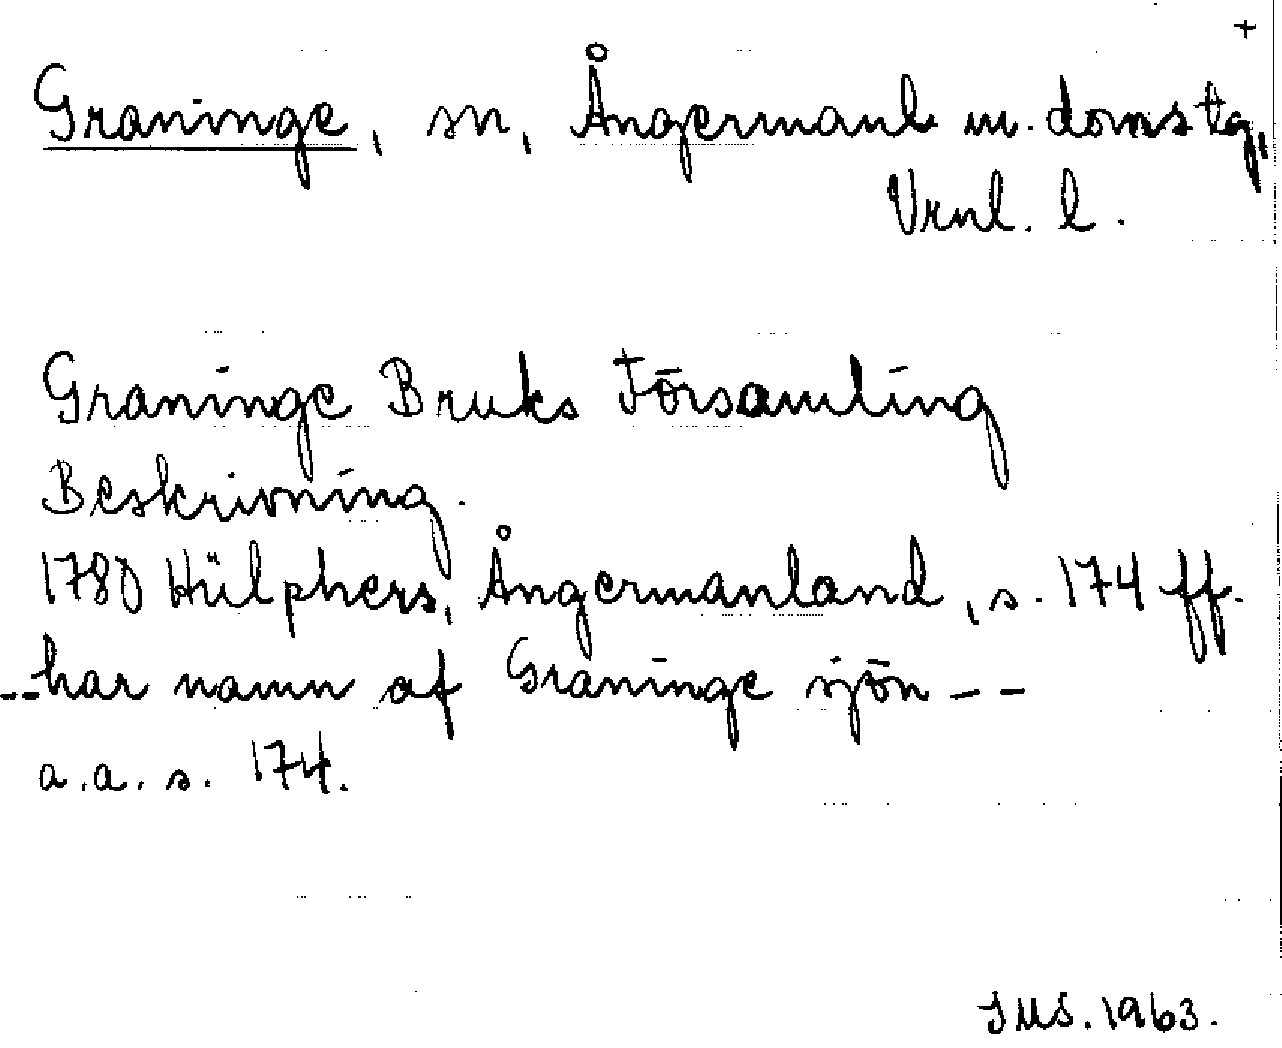 +
Graninge, sn, Ångermanl m. domstg,
Vrnl. l.
Graninge Bruks Församling
Beskrivning.
1780 Hülphers, Ångermanland, s. 174 ff.
--har namn af Graninge sjön --
a.a. s. 174.
IMS. 1963.